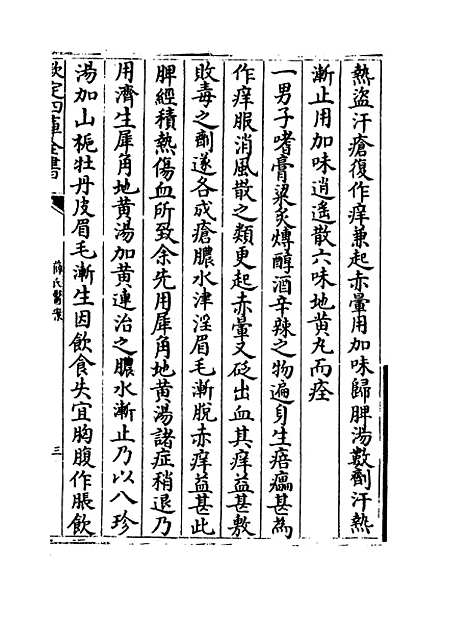 熱盜汗瘡復作痒兼起赤暈用加味歸脾湯數劑汗熱
漸止用加味逍遙散六味地黄丸而痊
一男子嗜膏粱炙煿醇酒辛辣之物遍身生㾦㿔甚為
作痒服消風散之類更起赤暈又砭出血其痒益甚敷
敗毒之劑遂各成瘡膿水津淫眉毛漸脫赤痒益甚此
脾經積熱傷血所致余先用犀角地黄湯諸症稍退乃
用濟生犀角地黄湯加黄連治之膿水漸止乃以八珍
湯加山梔牡丹皮眉毛漸生因飲食失宜胸腹作脹飲
欽定四庫全書
薛氏醫案
三